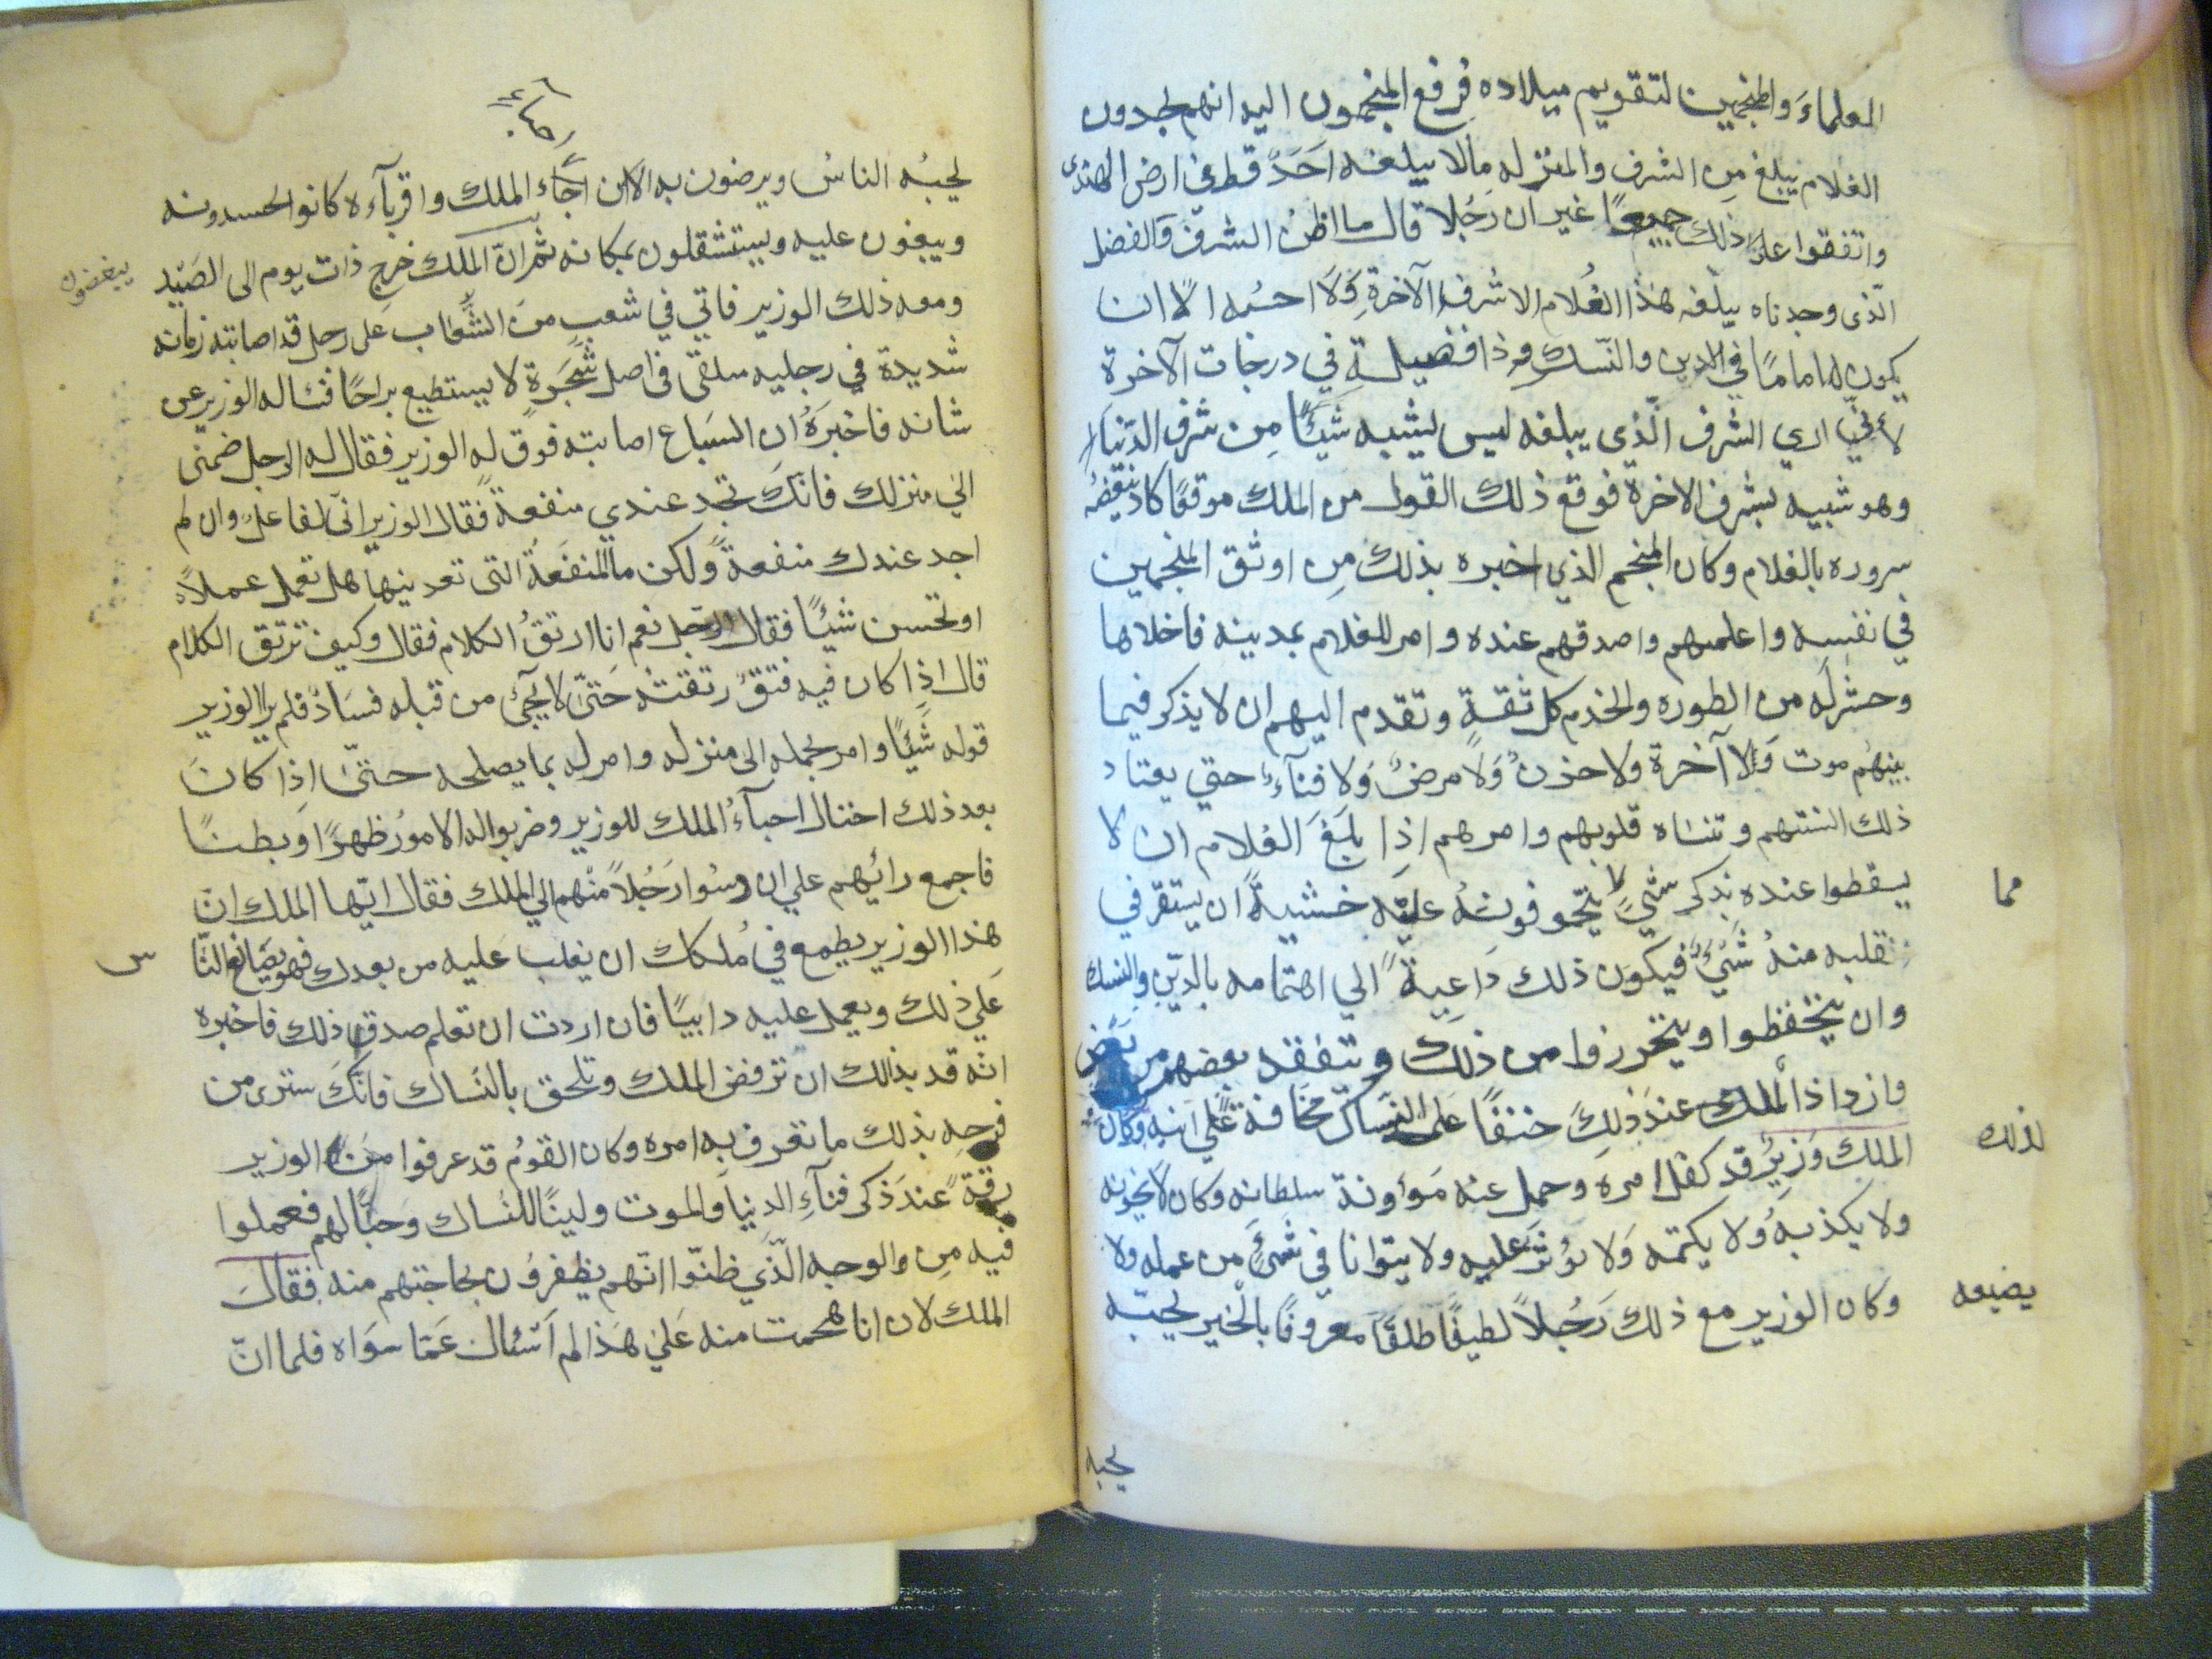 العلماءَ والمنجمين لتقويم ميلاده فرفع المنجمون اليه انهم يجدون
الغلام يبلغ مِن الشرف والمنزله مالا يبلغه اَحَدً قط في ارض الهندى
واتفقوا على ذلك جميعًا غير ان رَجُلا قال ما اظنُ الشرفَ وَالفضل
الّذى وجدناه يبلّغه هٰذا الغُلام الا شرف الآخرةِ وَلَا احسُبه الّا ان
يكون له امامًا في الدين والنّسك وذا فضيلةٍ في درجات الآخرة
لأنّي اري الشرف الّذى يبلغه ليس يشبه شيئًا مِن شرف الدّنيا
وهو شبيه بشرف الاخرة فوقع ذلك القول من الملك موقعًا كاد ينغصُه
سروره بالغلام وكان المنجم الذي اخبره بذلك مِن اوثق المنجمين
في نفسه واعلمهم واصدقهم عنده وامر للغلام بمدينه فاخلاها
وحشر لَه مِن الطوره والخدم كل ثقةٍ وتقدم اليهم ان لا يذكر فيما
بينهُم موت وَلا آخرة ولا حزنٌ وَلَا مرضٌ وَلا فنآءٌ حتي يعتاد
ذلك السنتهم وتنساه قلوبهم وامرهم اذِا بلَغَ الغلام ان لا
يسقطوا عنده بذكر شئٍ لا يتخوفونهُ عليَه خشيةً ان يستقرّ في
مما
قلبه منهُ شَيْءٌ فيكون ذلك دَاعِيةً الي اهتمامه بالدّينِ والنسك
وان يتحفظوا ويتحرزوا من ذلِك ويتفقد بعضهم من بَعْضٍ
وازداذ الملك عندَ ذلِكَ حنفًا عَلى النسّاك مخَافةً عَلي ابنهِ وكان
لذلك
الملك وَزيرٌ قد كفل امره وحمل عنه مَؤونة سلطانه وكان لا يخونه
ولا يكذبهُ ولا يكتمه وَلا يؤثر عليه ولا يتوانا في شَئٍ من عمله ولا
وكان الوزير مع ذلك رَجُلاً لطيفًا طلقًا معروفًا بالخير يحبّه
يضيعه
يحبه
يحبُه الناسُ ويرضون به الا ان احبَّاء الملك واقربآءه كانوا يحسدونه
ويبغون عليه ويستثقلون بمكانه ثمّ انّ الملك خرج ذات يوم الى الصَيْد
يبغضون
ومعه ذلك الوزير فاتي في شعبٍ منَ الشّعاب عَلى رجل قد اصابته زمانه
شديدة في رجليه ملقىً في اصل شَجَرَةٍ لا يستطيع براحًا فساله الوزير عن
شانه فاخبرَهُ ان السّباع اصابته فرق له الوزير فقال له الرجل ضمنى
الي منزلك فانّكَ تجد عندي منفعةً فقال الوزير انّى لفاعلٌ وان لم
اجد عندك منفعةً ولكن ما المنفَعَةُ التى تعدينيها هل تعمل عملاً
او تحسن شيئًا فقال الرّجل نعم انا ارتقُ الكلام فقال وكيف ترتق الكلام
قال اذِا كان فيه فتقٌ رتقتهُ حَتىّ لا يجئَ من قبله فسَادٌ فلم ير الوزير
قوله شَيْئًا وامر بحمله الى منزله وامر له بما يصلحه حتىّ اذِا كانَ
بعد ذلك احتال احبآءُ الملك للوزير وضربوا له الامورُ ظهرًا وبطنًا
فاجمع رائيهم علي ان دسُوا رَجُلاً منهم الي الملك فقال ايّها الملك انّ
هذا الوزير يطمع في مُلكك ان يغلب عَليه من بعدك فهو يصَانع النّا
س
عَلي ذلك ويعمل عليه دايبًا فان اردت ان تعلم صدق ذلك فاخبره
انّه قد بدا لك ان ترفض الملك وتلحق بالنّساك فانّكَ سترى من
فرحهِ بذلك ما تعرف به امره وكان القومُ قد عرفوا منَ الوزير
رقةً عندَ ذكر فنآءِ الدنِيا وَالموت ولينًا للنُساك وَحبًّا لهم فعملوا
فيه مِن والوجه الّذَي ظنّوا انهّم يظفرون بحاجتهم منه فقالَ
الملك لان انا هجمت منه عَليٰ هَذا لم اَسْال عَمّا سوَاه فلما انّ